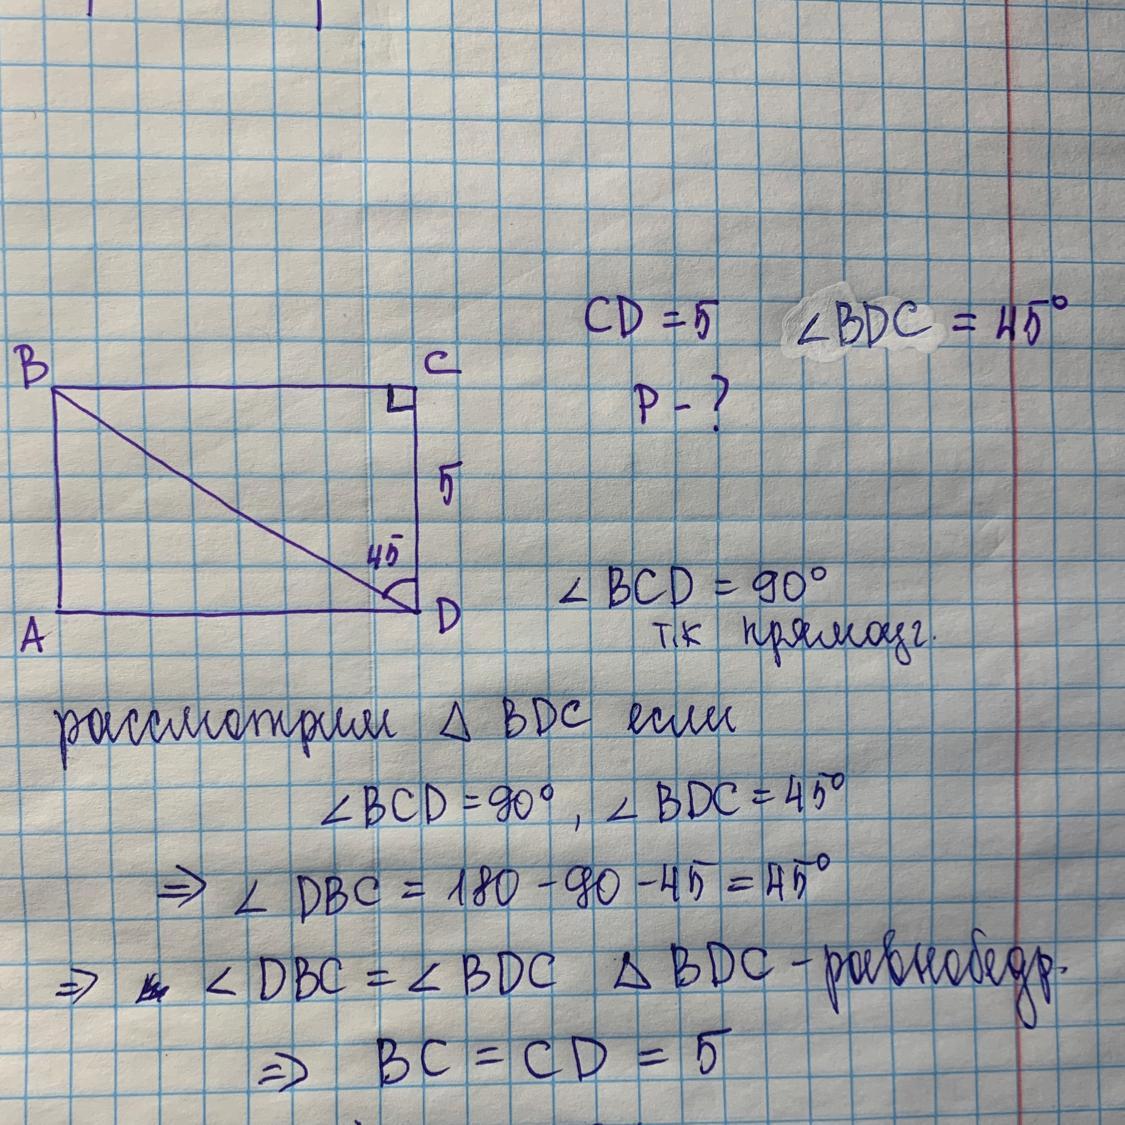 CD = 5 ∠BDC = 45°
P - ?
B
C
5
45
A
D
∠ BCD = 90°
т.к прямоуг.
рассмотрим Δ BDC если
∠BCD = 90°, ∠ BDC = 45°
⇒ ∠ DBC = 180 - 90 - 45 = 45°
⇒ ∠ DBC = ∠ BDC Δ BDC - равнобедр.
⇒ BC = CD = 5